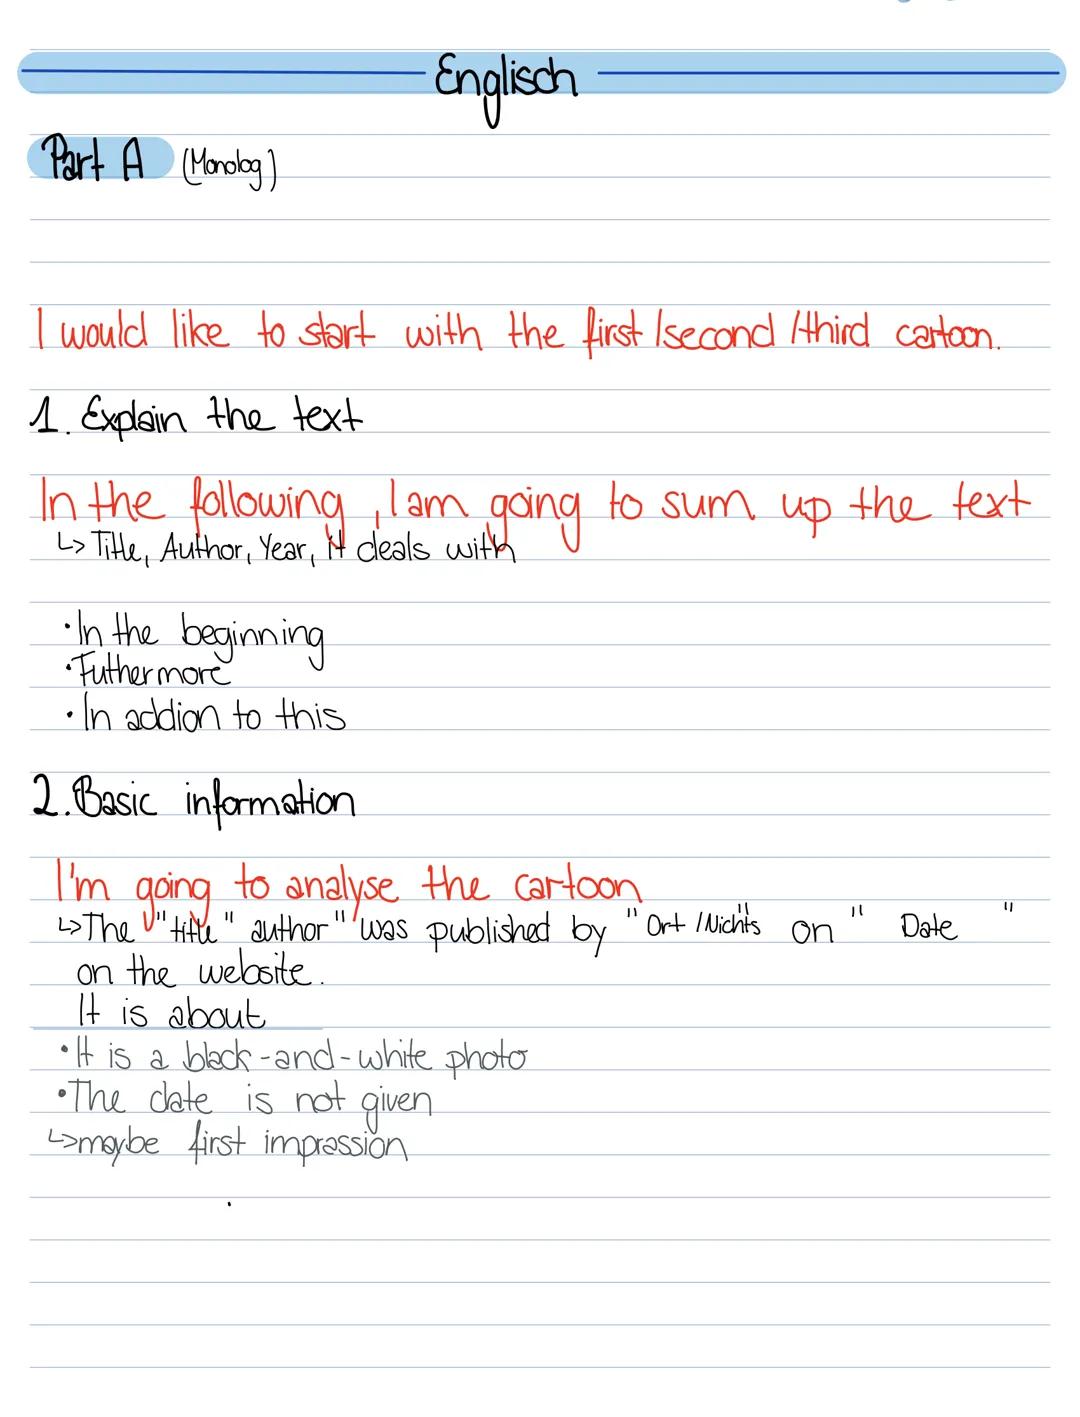 Englisch
Part A (Monolog)
I would like to start with the first/second/third cartoon.
1. Explain the text
In the following, I am going to sum up the text
↳ Title, Author, Year, it deals with
• In the beginning
• Futhermore
• In addion to this
2. Basic information
I'm going to analyse the cartoon
↳ The "title" author" was published by "Ort /Nichts" on " Date "
on the website.
It is about
• It is a black-and-white photo
• The date is not given
↳ maybe first imprassion